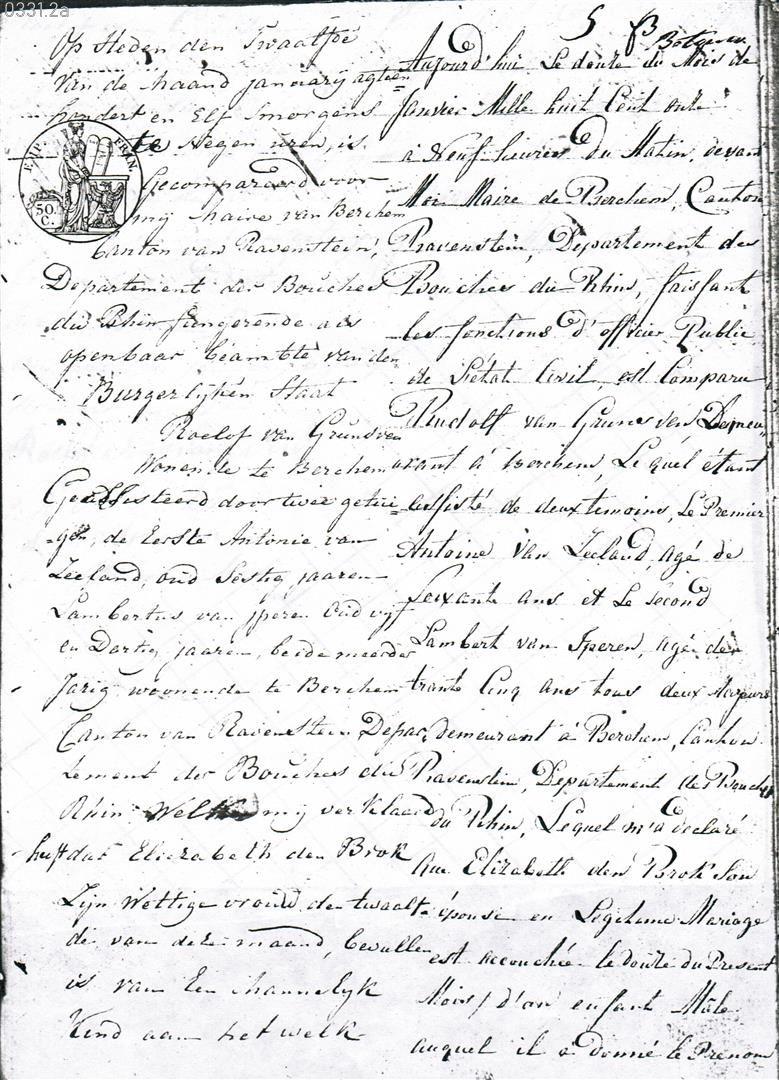 0331.2a
5 β
Op Heden den Twaalfde
van de maand januarij agtien
hondert en Elf smorgens
te Negen uren, is
Gecompareerd voor
mij Maire van Berchem
Canton van Ravenstein,
Departement der Bouches
du Rhin fungerende als
openbaar beambte van den
Burgerlijken Staat
Roelof van Grunsven
Wonende te Berchem
Geassisteerd door twee getui=
=gen, de Eerste Antonie van
Zeeland, oud Sestig jaaren
Lambertus van Iperen Oud vijf
en Dertig jaaren, beide meerder
Jarig woonende te Berchem
Canton van Ravenstein Depar,
tement der Bouches du
Rhin Welke mij verklaard
heeft dat Elizabeth den Brok
Zijn Wettige vrouw den twaalf=
de van deze maand, bevallen
is van Een Mannelijk
Kind aan het welk
Aujourd'hui Le douze du Mois de
Janvier Mille huit Cent onze
à Neuf heures Du Matin, devant
Moi Maire de Berchem, Canton
Ravenstein, Departement des
Bouches du Rhin, faisant
les fonctions d'officier Public
de L'état Civil, est Comparu
Rudolf van Grunsven, Demeu=
orant à Berchem, Lequel étant
assisté de deux temoins, Le Premier
Antoine Van Zeeland, agé de
Soixante ans et Le Second
Lambert van Iperen, agé de
trante Cinq ans tous deux Majeurs
demeurant à Berchem, Canton
Ravenstein, Departement des Bouches
du Rhin, Lequel m'a declaré
que Elizabeth den Brok Son
épouse en Legitime Mariage
est accouchée le douze du Present
Mois d'un enfant Mâle
auquel il a donné le Prenom
EMP. FRAN.
50. C.